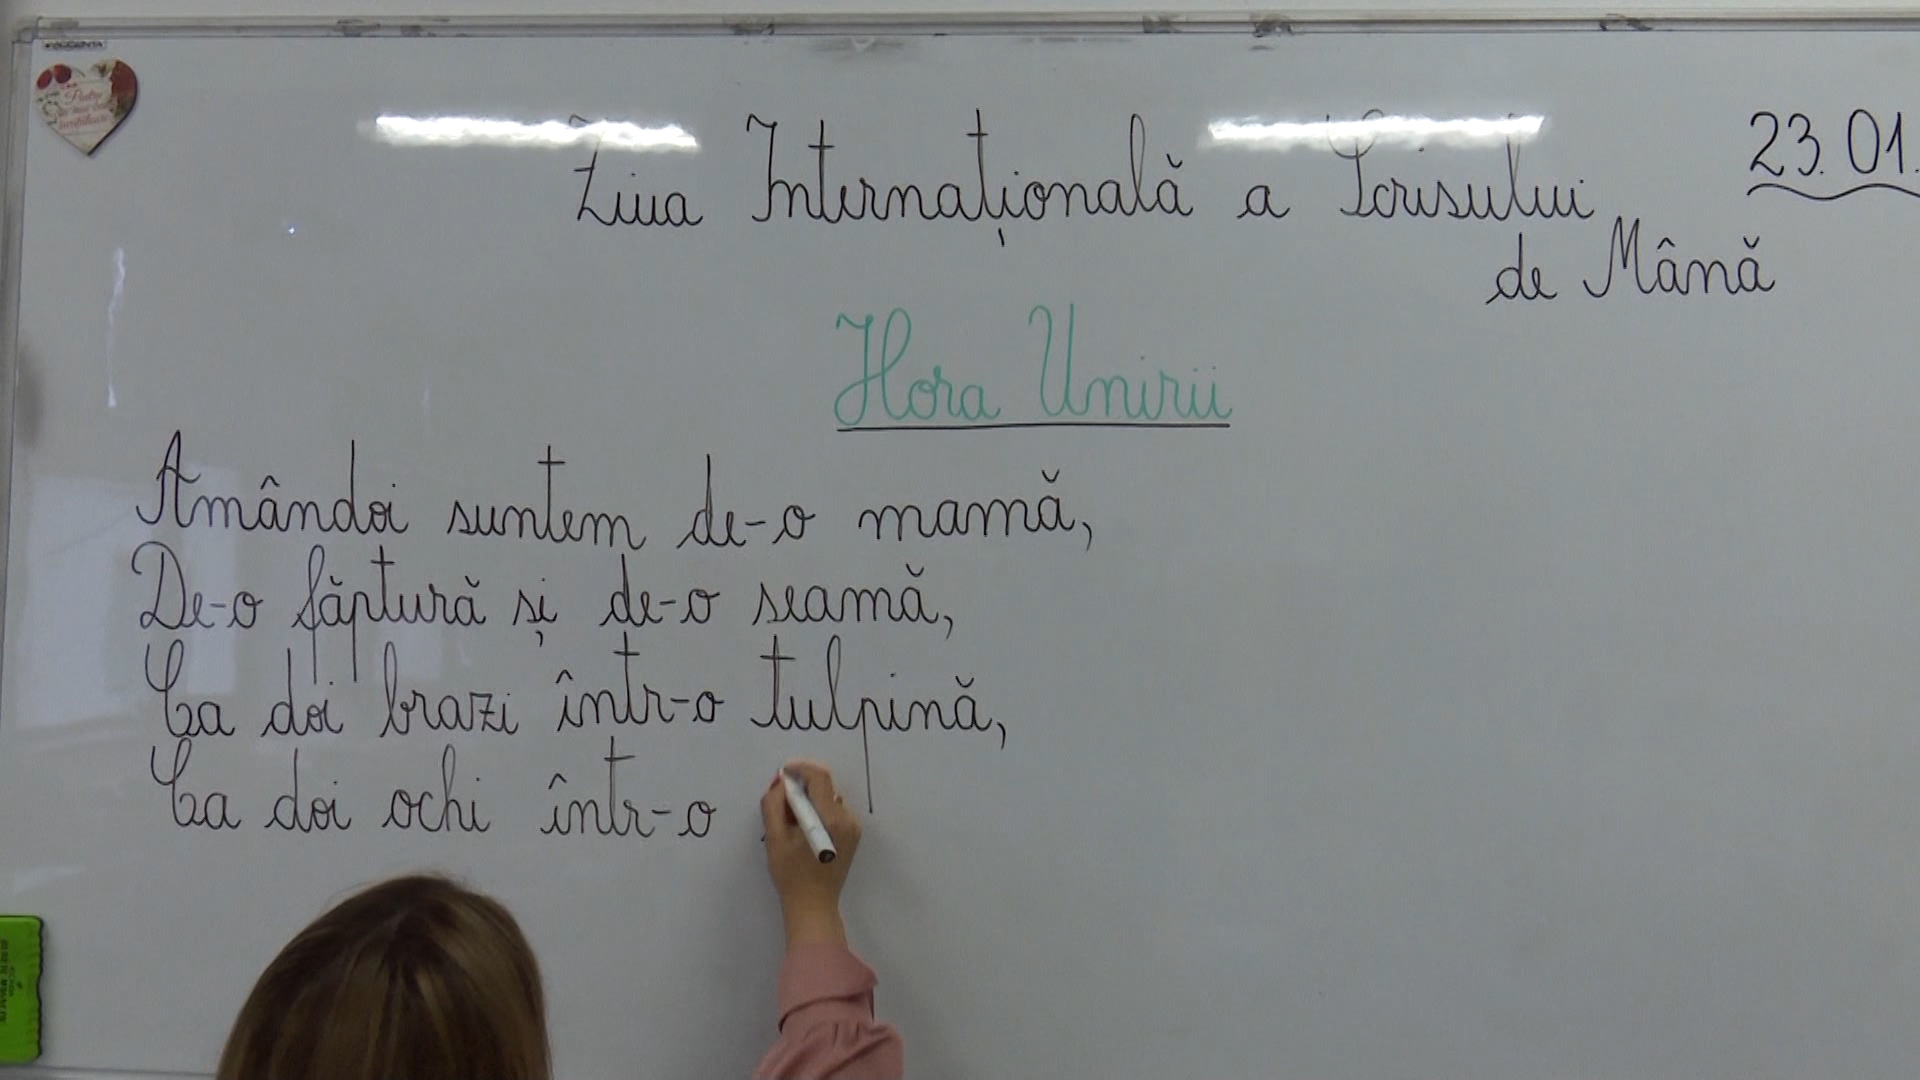 Ziua Internațională a Scrisului
de Mână
23.01.
Hora Unirii
Amândoi suntem de-o mamă,
De-o făptură și de-o seamă,
Ca doi brazi într-o tulpină,
Ca doi ochi într-o